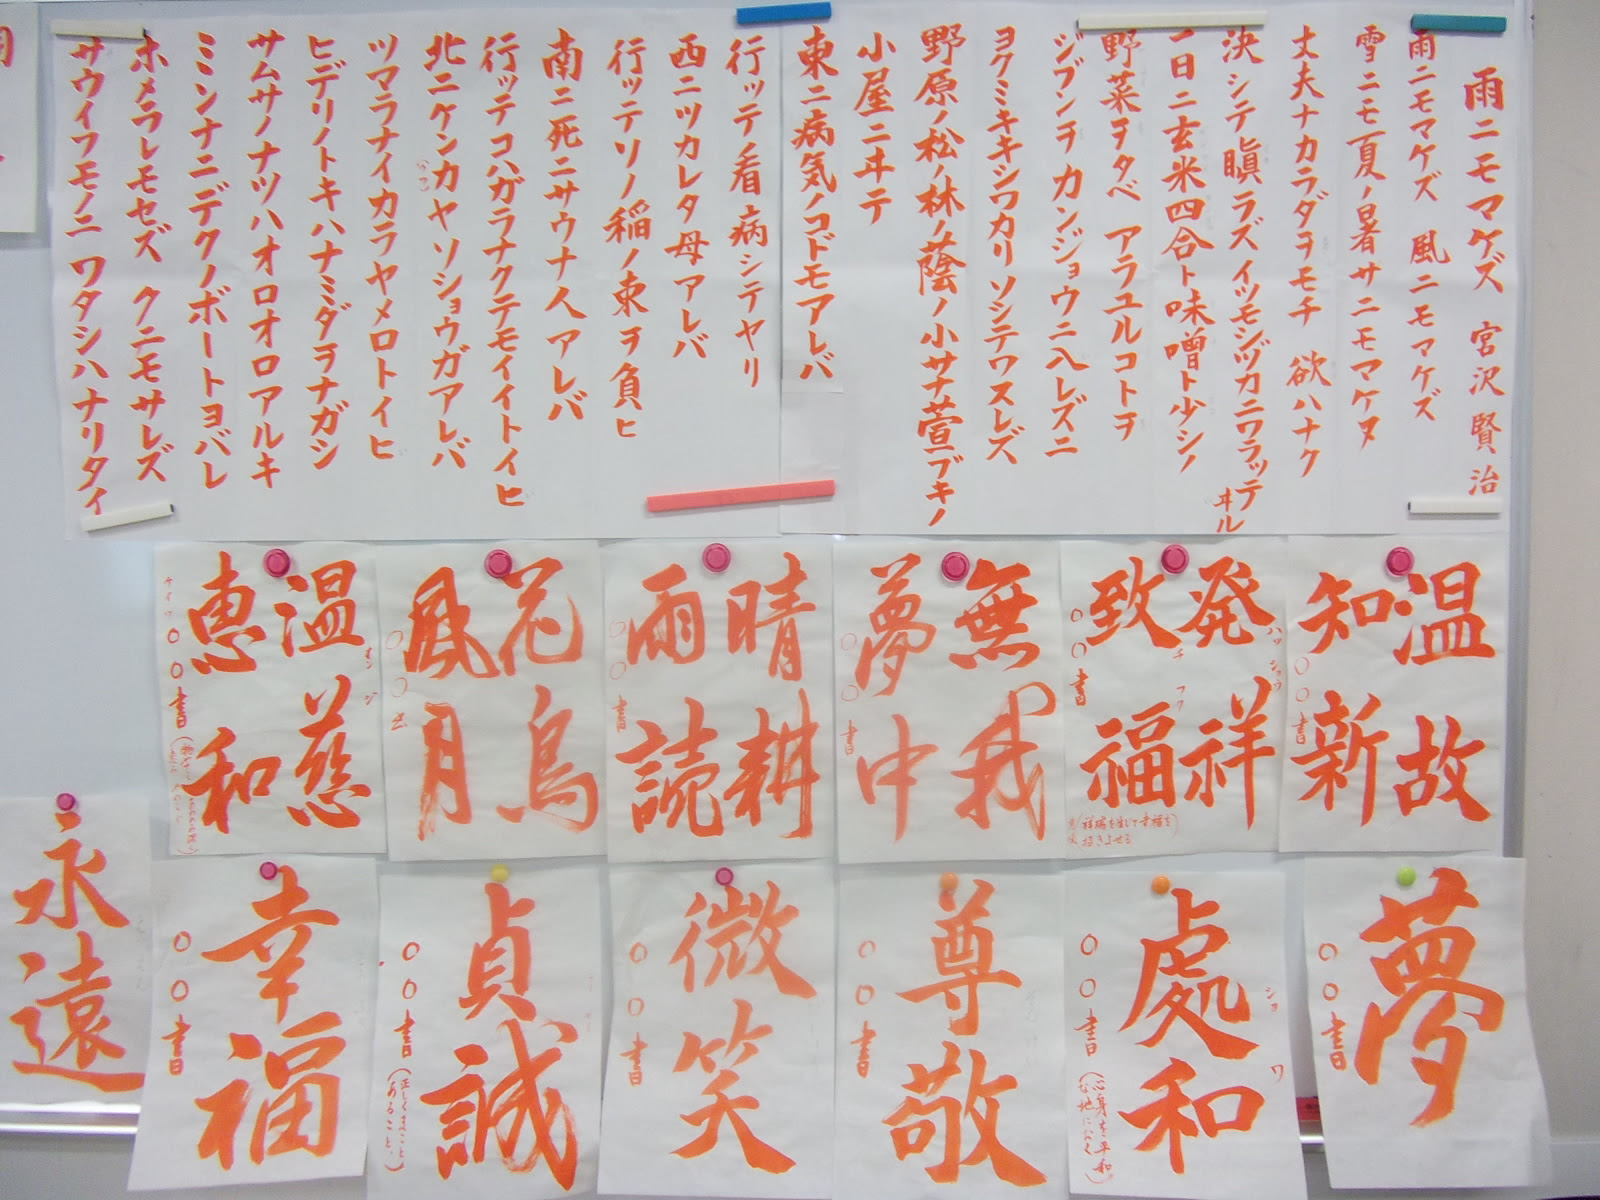 雨ニモマケズ 宮沢賢治
雨ニモマケズ 風ニモマケズ
雪ニモ夏ノ暑サニモマケヌ
丈夫ナカラダヲモチ 欲ハナク
決シテ瞋ラズイツモシヅカニワラッテヰル
一日ニ玄米四合ト味噌ト少シノ
野菜ヲタベ アラユルコトヲ
ジブンヲカンジョウニ入レズニ
ヨクミキキシワカリソシテワスレズ
野原ノ松ノ林ノ蔭ノ小サナ萱ブキノ
小屋ニヰテ
東ニ病気ノコドモアレバ
行ッテ看病シテヤリ
西ニツカレタ母アレバ
行ッテソノ稲ノ束ヲ負ヒ
南ニ死ニサウナ人アレバ
行ッテコハガラナクテモイイトイヒ
北ニケンカヤソショウガアレバ
ツマラナイカラヤメロトイヒ
ヒデリノトキハナミダヲナガシ
サムサノナツハオロオロアルキ
ミンナニデクノボートヨバレ
ホメラレモセズ クニモサレズ
サウイフモノニ ワタシハナリタイ
温故
知新
〇〇書
発祥
ハッショウ
致福
チフク
〇〇書
祥瑞を生じて幸福を
招きよせる
無我
夢中
〇〇書
晴耕
雨読
〇〇書
花鳥
風月
〇〇書
温慈
オンジ
恵和
ケイワ
〇〇書
夢
〇〇書
處和
ショワ
〇〇書
(心身を平和
な地におく)
尊敬
〇〇書
微笑
〇〇書
貞誠
〇〇書
(正しくまこと
あること)
幸福
〇〇書
永遠